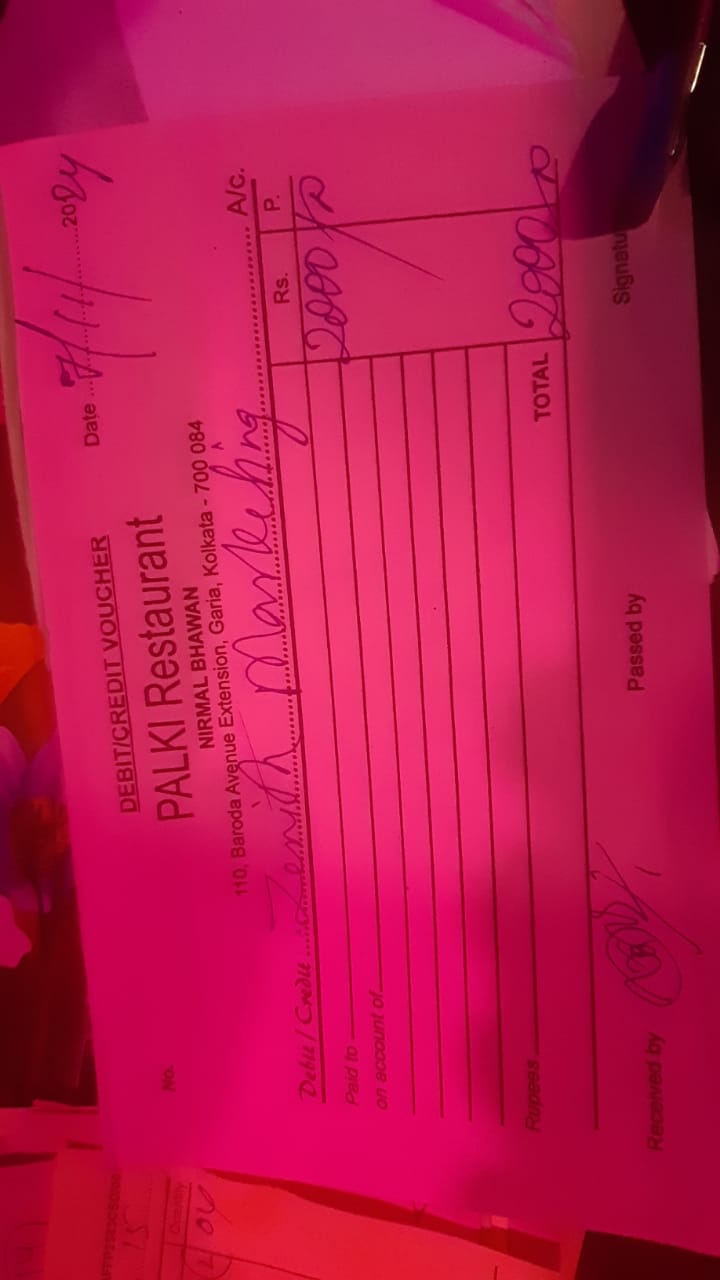 DEBIT/CREDIT VOUCHER
Date 7/11/2024
PALKI Restaurant
NIRMAL BHAWAN
110, Baroda Avenue Extension, Garia, Kolkata - 700 084
No.
Debit / Credit Zenith Marketing A/c.
Rs. P.
2000/-
Paid to
on account of
Rupees TOTAL 2000/-
Received by Passed by Signatu
15
Quantity